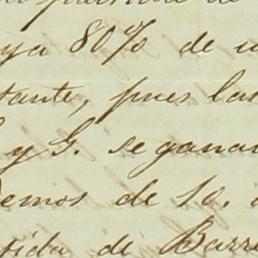 ya 80% de
tante, pues las
y G. se ganar
emos de 10.
tida de Barr